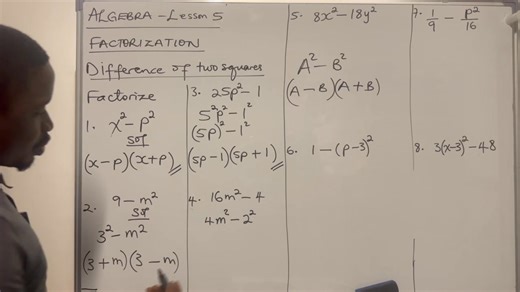 ALGEBRA - Lesson 5
FACTORIZATION
Difference of two squares
Factorize
1. x² - p²
Sol
(x - p)(x + p)
2. 9 - m²
Sol
3² - m²
(3 + m)(3 - m)
3. 25p² - 1
5²p² - 1²
(5p)² - 1²
(5p - 1)(5p + 1)
4. 16m² - 4
4m² - 2²
5. 8x² - 18y²
A² - B²
(A - B)(A + B)
6. 1 - (p - 3)²
7. 1/9 - p²/16
8. 3(x - 3)² - 48